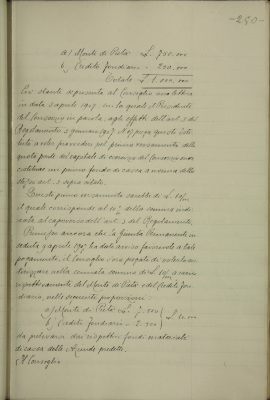 -250-
a) Monte di Pietà L. 750.000
b) Credito fondiario - 250.000
Totale L 1.000.000
Ciò stante si presenta al Consiglio una lettera
in data 3 aprile 1917 con la quale il Presidente
del Consorzio in parola, agli effetti dell'art. 5 del
Regolamento 3 gennaio 1917 N° prega questo Isti-
tuto a voler provvedere pel primo versamento della
quota parte di capitale di esercizio del Consorzio onde
costituire un primo fondo di cassa a norma dello
stesso art. 5 sopra citato.
Questo primo versamento sarebbe di L.
il quale corrisponde al della somma indi-
cata al capoverso dell'art. 5 del Regolamento.
Premesso ancora che la Giunta Permanente in
seduta 4 aprile 1917 ha dato avviso favorevole a tale
pagamento, il Consiglio è ora pregato di volerlo au-
torizzare nella cennata somma di L. a carico
rispettivamente del Monte di Pietà e del Credito fon-
diario, nelle seguenti proporzioni:
a) Monte di Pietà L. 7.500
b) Credito fondiario - 2.500
da prelevarsi dai rispettivi fondi materiali
di cassa delle Aziende predette.
Il Consiglio